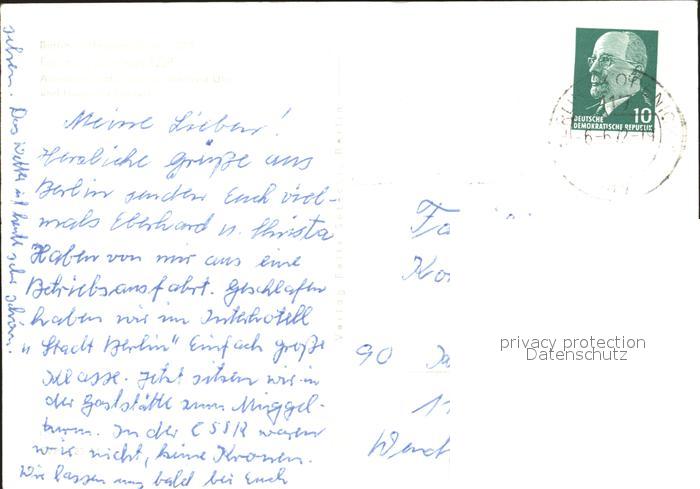 Meine Lieben!
Herzliche Grüße aus
Berlin senden Euch viel-
mals Eberhard u. Christa
Haben von mir aus eine
Betriebsausfahrt. Geschlafen
haben wir im Interhotell
"Stadt Berlin" Einfach große
Klasse. Jetzt sitzen wir in
der Gaststätte zum Müggel-
turm. In der CSSR waren
wir nicht, keine Kronen.
Wir lassen uns bald bei Euch
sehen. Das Wetter ist heute sehr schön.
10
DEUTSCHE
DEMOKRATISCHE REPUBLIK
Fa
90
privacy protection
Datenschutz